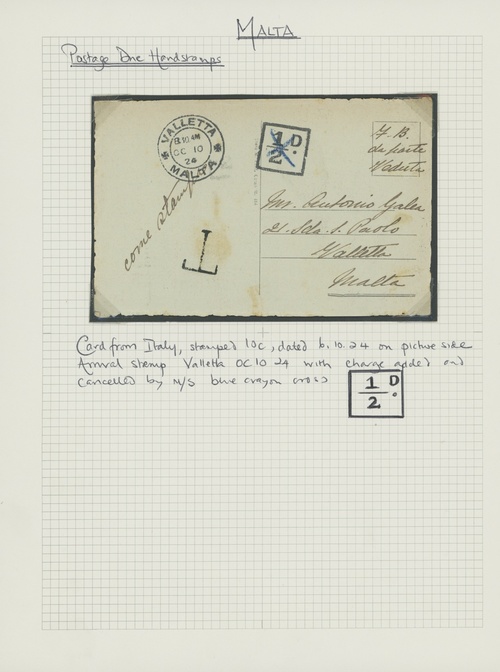 MALTA
Postage Due Handstamps
VALLETTA
8.30 AM
OC 10
24
MALTA
1/2 D.
T. B.
da parte
Veduta
come stampe
T
Mr. Antonio Galea
21 Sda. S. Paolo
Valletta
Malta
Card from Italy, stamped 10c, dated 6.10.24 on picture side
Arrival stamp Valletta OC 10 24 with charge added and
cancelled by M/S blue crayon cross
1/2 D.